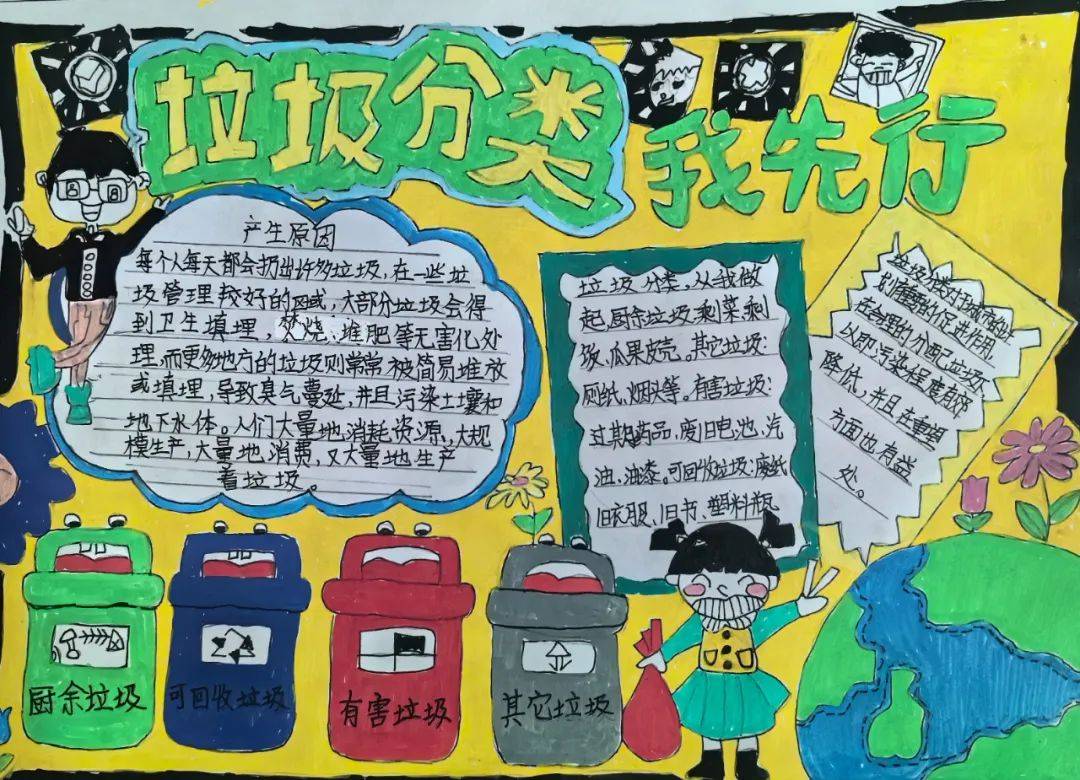 垃圾分类
我先行
产生原因
每个人每天都会扔出许多垃圾,在一些垃
圾管理较好的区域,大部分垃圾会得
到卫生填埋,焚烧、堆肥等无害化处
理,而更多地方的垃圾则常常被简易堆放
或填埋,导致臭气蔓延,并且污染土壤和
地下水体。人们大量地消耗资源,大规
模生产,大量地消费,又大量地生产
着垃圾。
垃圾分类,从我做
起,厨余垃圾,剩菜剩
圾、瓜果皮壳。其它垃圾:
厕纸、烟头等。有害垃圾:
过期药品,废旧电池、汽
油、油漆。可回收垃圾:废纸
旧衣服、旧书、塑料瓶
垃圾分类对于城市
到重要的促进作用,
在合理的分配垃圾
以即污染程度
降低,并且在
方面也有益
处。
厨余垃圾
可回收垃圾
有害垃圾
其它垃圾